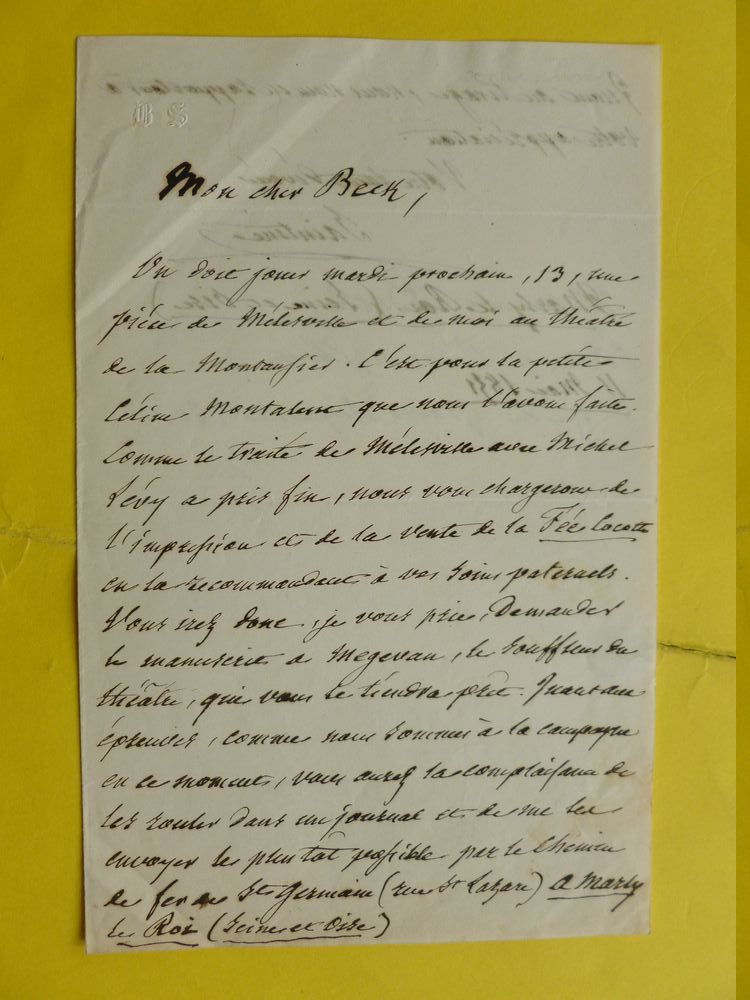 Mon cher Beck,
On doit jouer mardi prochain, 13, une
pièce de Mélesville et de moi au théâtre
de la Montansier. C'est pour la petite
Céline Montaland que nous l'avons faite.
Comme le traité de Mélesville avec Michel
Lévy a pris fin, nous vous chargerons de
l'impression et de la vente de la Fée Cocotte
en la recommandant à vos soins paternels.
Vous irez donc, je vous prie, demander
le manuscrit a Megevan, le souffleur du
théâtre, qui vous le tiendra prêt. Quant aux
épreuves, comme nous sommes à la campagne
en ce moment, vous aurez la complaisance de
les rouler dans un journal et de me les
envoyer le plutôt possible par le chemin
de fer de St Germain (rue St Lazare) a Marly
le Roi (Seine et Oise)